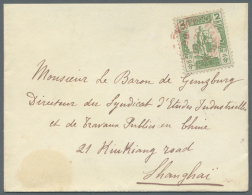 Monsieur Le Baron de Gunzburg
Directeur du Syndicat d'Etudes Industrielles
et de Travaux Publics en Chine
21 Kiukiang road
Shanghaï
2